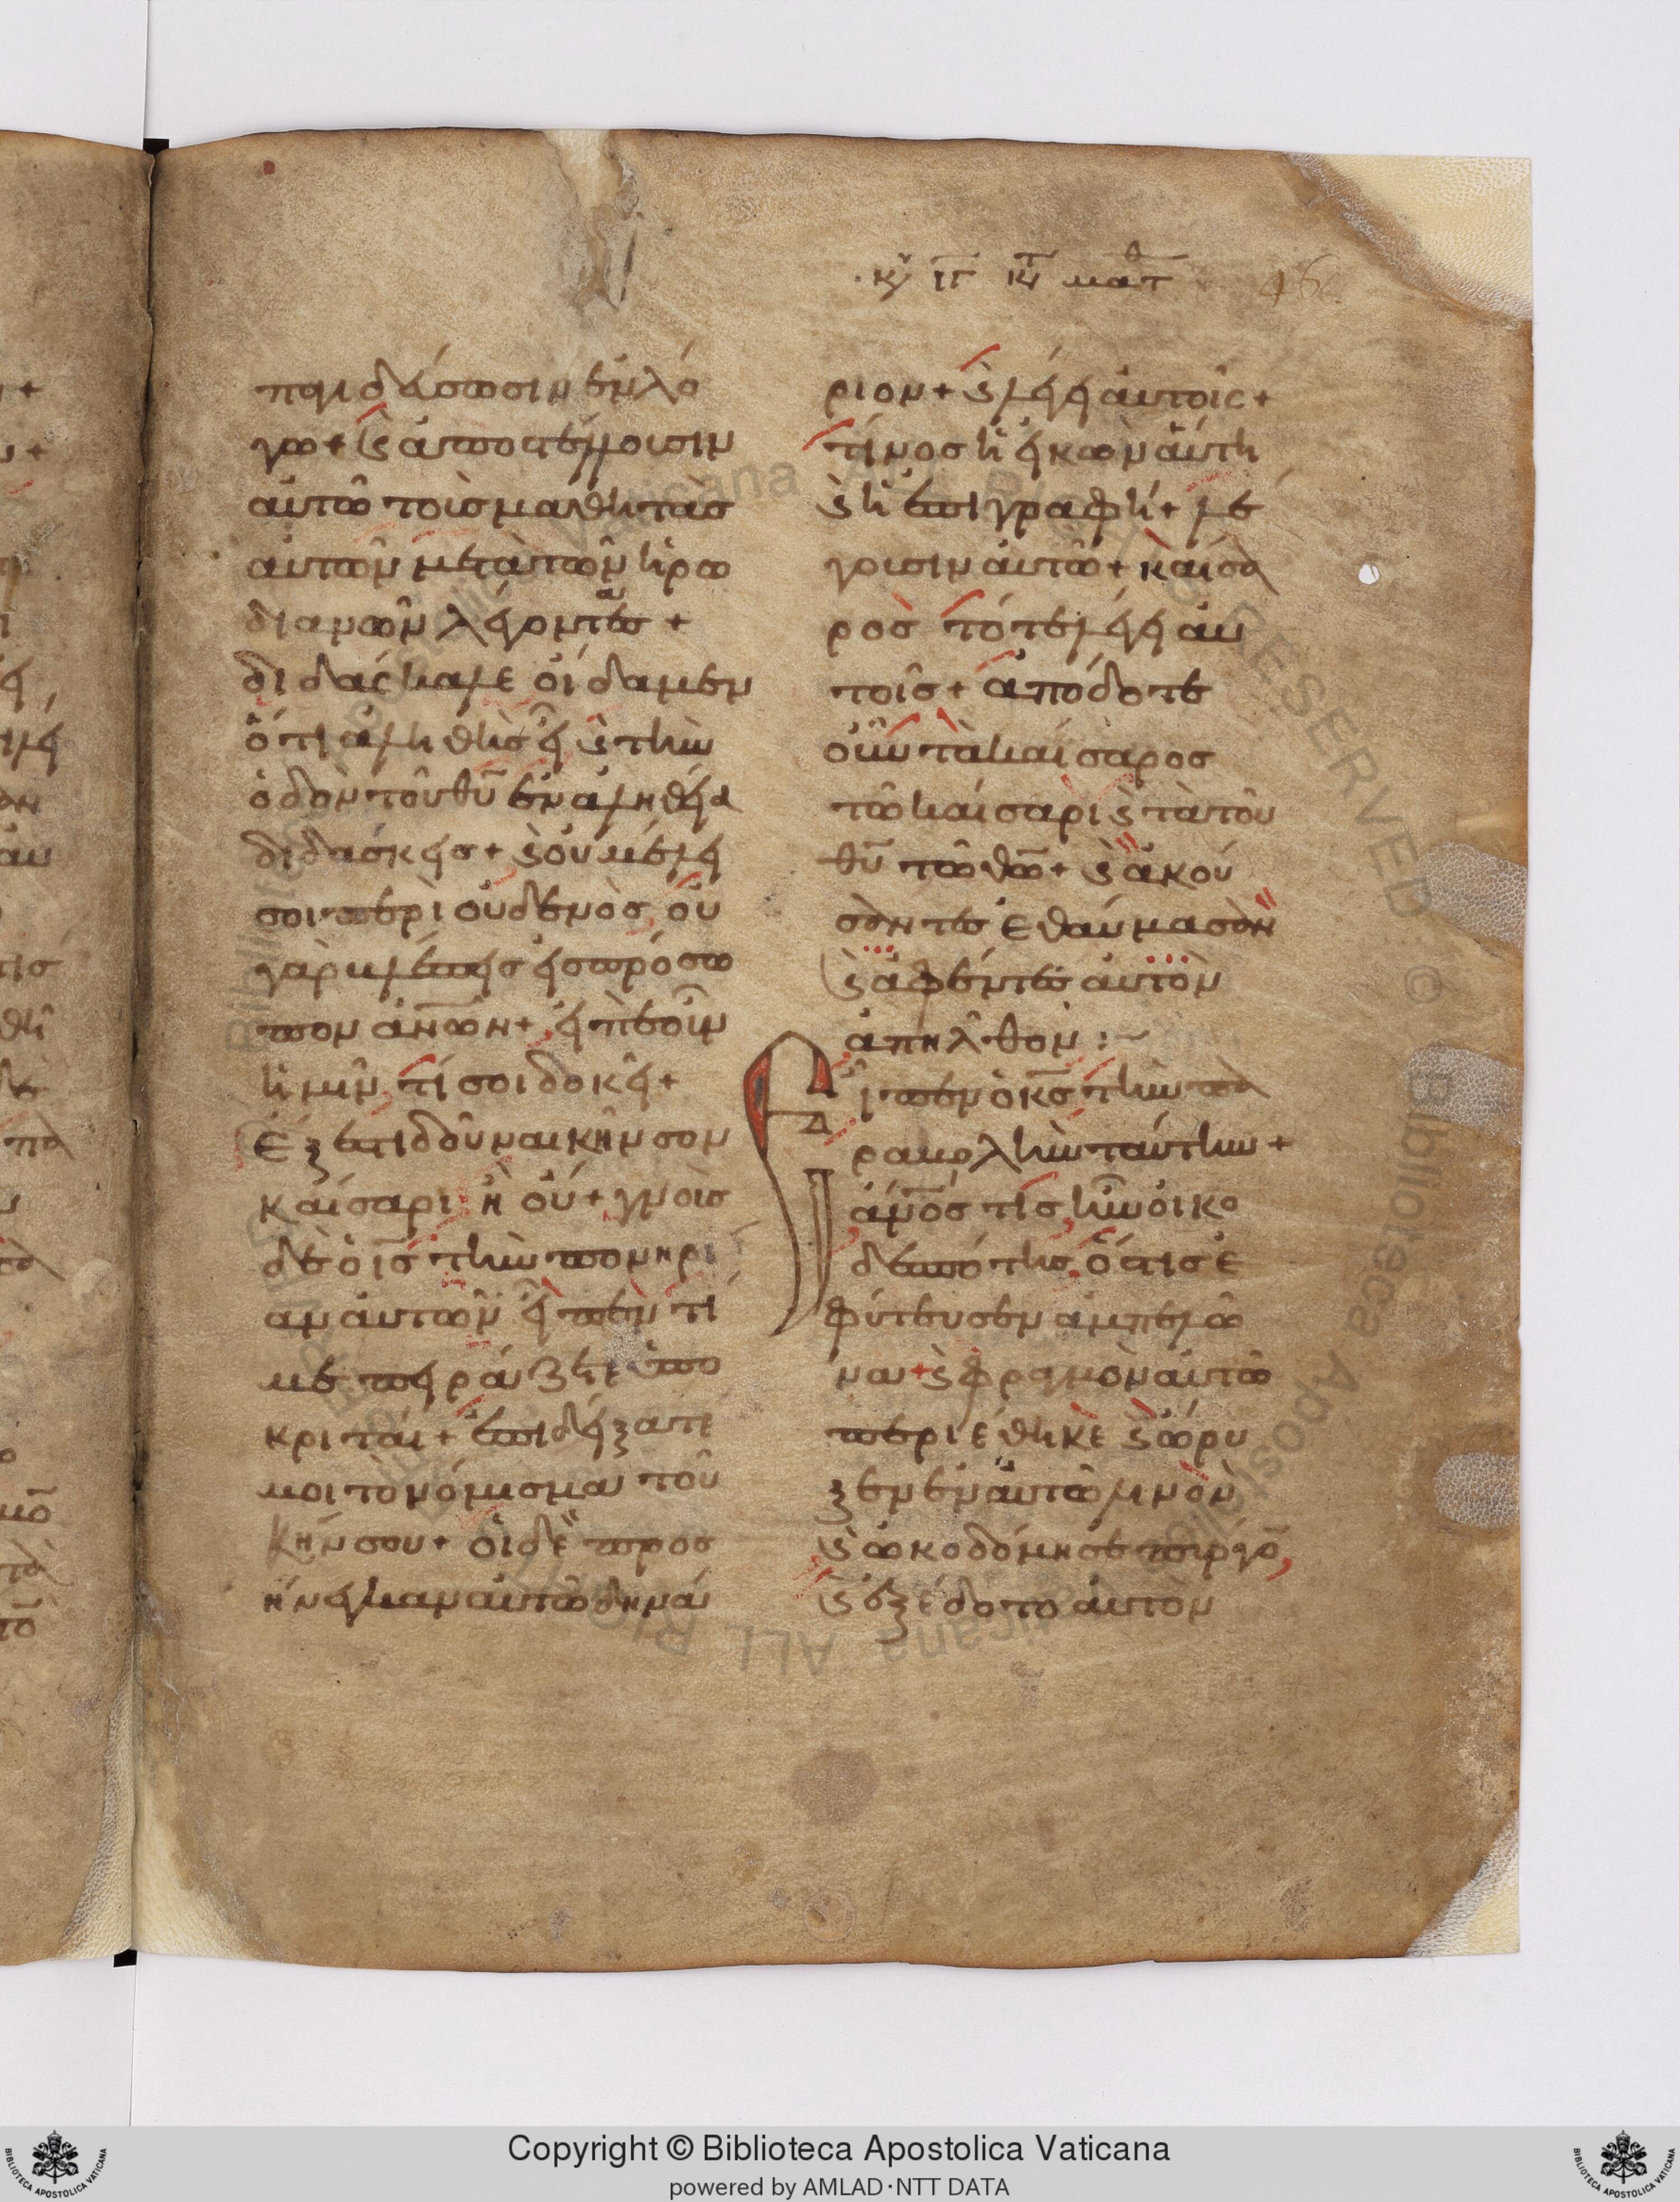 κυ ιγ κτ ματθ 46
παγιδέσωσιν ἐν λό
γω + ϗ ἀποστέλλουσιν
αὐτῶ τοὺς μαθητὰς
αὐτῶν μετὰ τῶν ἡρω
διανῶν λέγοντες +
διδάσκαλε οἴδαμεν
ὅτι ἀληθὴς εἶ ϗ τὴν
ὁδὸν τοῦ θυ ἐν ἀληθεία
διδάσκεις + ϗ οὐ μέλει
σοι περὶ οὐδενὸς οὐ
γὰρ βλέπεις εἰς πρόσω
πον ἀνων + εἰπὲ οὖν
ἡμῖν τί σοι δοκεῖ +
ἔξεστι δοῦναι κῆνσον
καίσαρι ἢ οὔ + γνοὺς
δὲ ὁ ις τὴν πονηρί
αν αὐτῶν εἶπεν τί
με πειράζετε ὑπο
κριταί + ἐπιδείξατέ
μοι τὸ νόμισμα τοῦ
κήνσου + οἱ δὲ προσ
ήνεγκαν αὐτῶ δηνά
ριον + ϗ λέγει αὐτοῖς +
τίνος ἡ εἰκὼν αὕτη
ϗ ἡ ἐπιγραφή + λέ
γουσιν αὐτῶ + καίσα
ρος τότε λέγει αὐ
τοῖς + ἀπόδοτε
οὖν τὰ καίσαρος
τῶ καίσαρι ϗ τὰ τοῦ
θυ τῶ θω + ϗ ἀκού
σοντες ἐθαύμασον
ϗ ἀφέντες αὐτὸν
ἀπῆλθον :~
Εἶπεν ὁ κς τὴν πα
ραβολὴν ταύτην +
ἄνος τις ἦν οἰκο
δεσπότης ὅστις ἐ
φύτευσεν ἀμπελῶ
να + ϗ φραγμὸν αὐτῶ
περιέθηκε ϗ ὤρυ
ξεν ἐν αὐτῶ ληνὸν
ϗ ὠκοδόμησε πύργο
ϗ ἐξέδοτο αὐτὸν
Copyright © Biblioteca Apostolica Vaticana
powered by AMLAD·NTT DATA